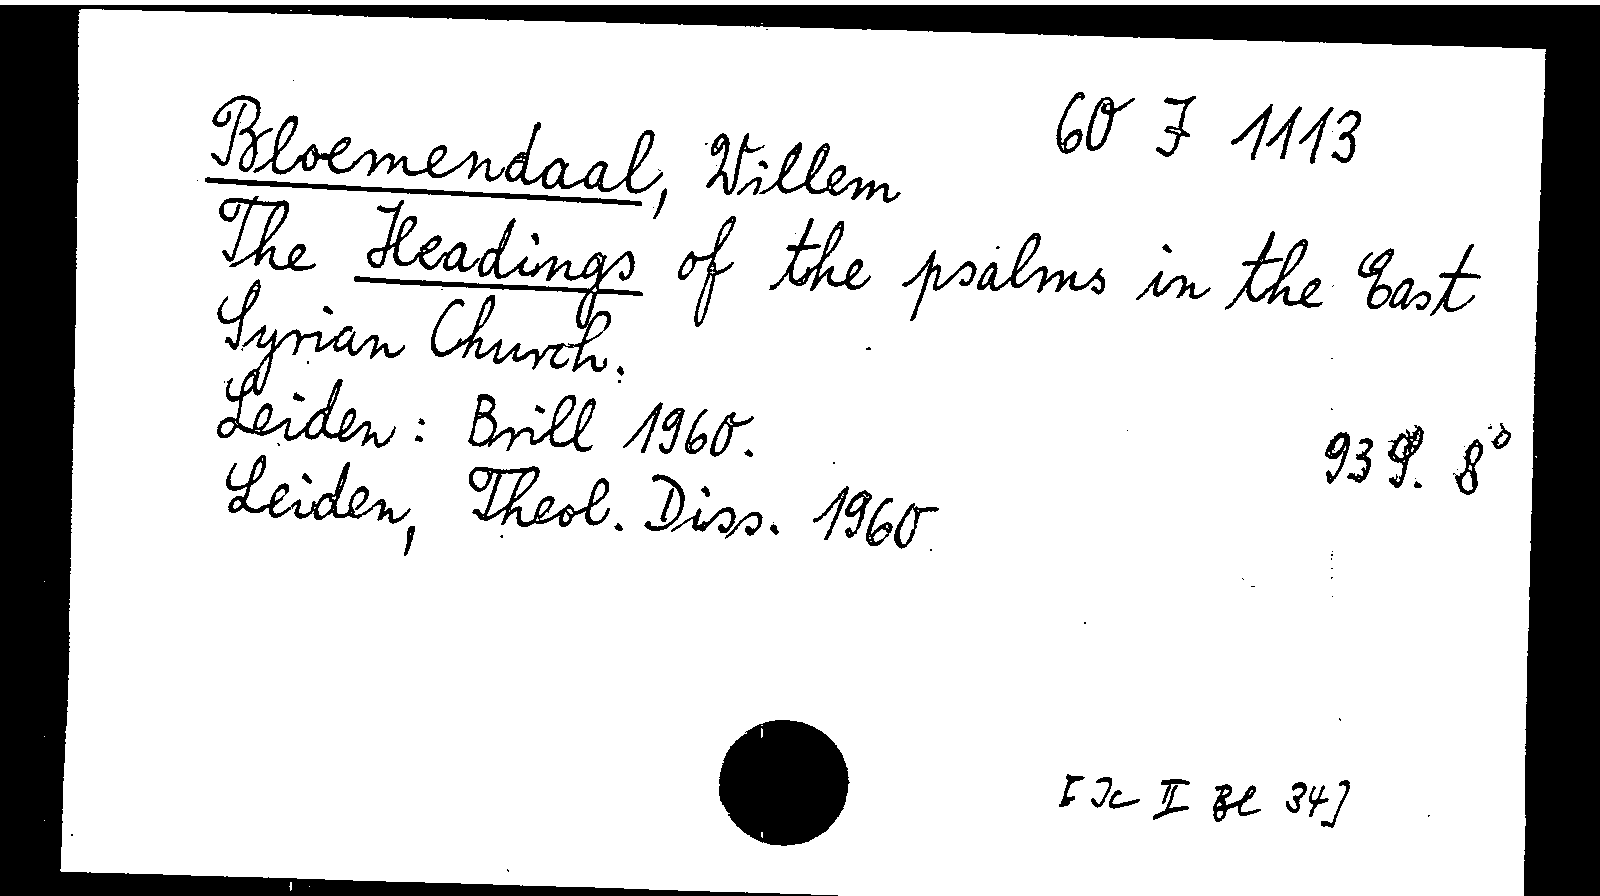 60 J 1113
Bloemendaal, Willem
The Headings of the psalms in the East
Syrian Church.
Leiden: Brill 1960.
93 S. 8°
Leiden, Theol. Diss. 1960
[Jc II Bl 34]